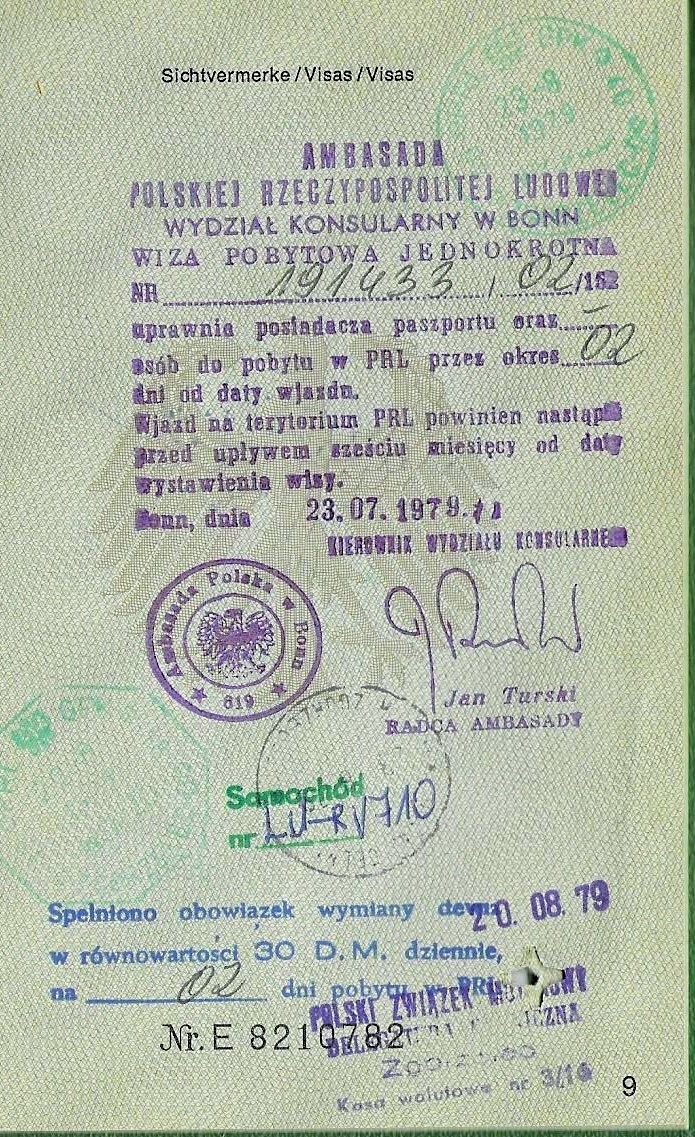 Sichtvermerke/Visas/Visas
AMBASADA
POLSKIEJ RZECZYPOSPOLITEJ LUDOWEJ
WYDZIAŁ KONSULARNY W BONN
WIZA POBYTOWA JEDNOKROTNA
NR 191433 / 02 /152
uprawnia posiadacza paszportu oraz –
osób do pobytu w PRL przez okres 02
dni od daty wjazdu.
Wjazd na terytorium PRL powinien nastąp
przed upływem sześciu miesięcy od daty
wystawienia wizy.
Bonn, dnia 23.07.1979.
KIEROWNIK WYDZIAŁU KONSULARNE
Ambasada Polska w Bonn
619
Jan Turski
RADCA AMBASADY
Samochód
nr LU-RV710
Spełniono obowiązek wymiany dewiz
20.08.79
w równowartości 30 D.M. dziennie,
na 02 dni pobytu w PRL
POLSKI ZWIĄZEK MOTOROWY
Nr. E 8210782
Zgorzelec
Kasa walutowa nr 3/16
9